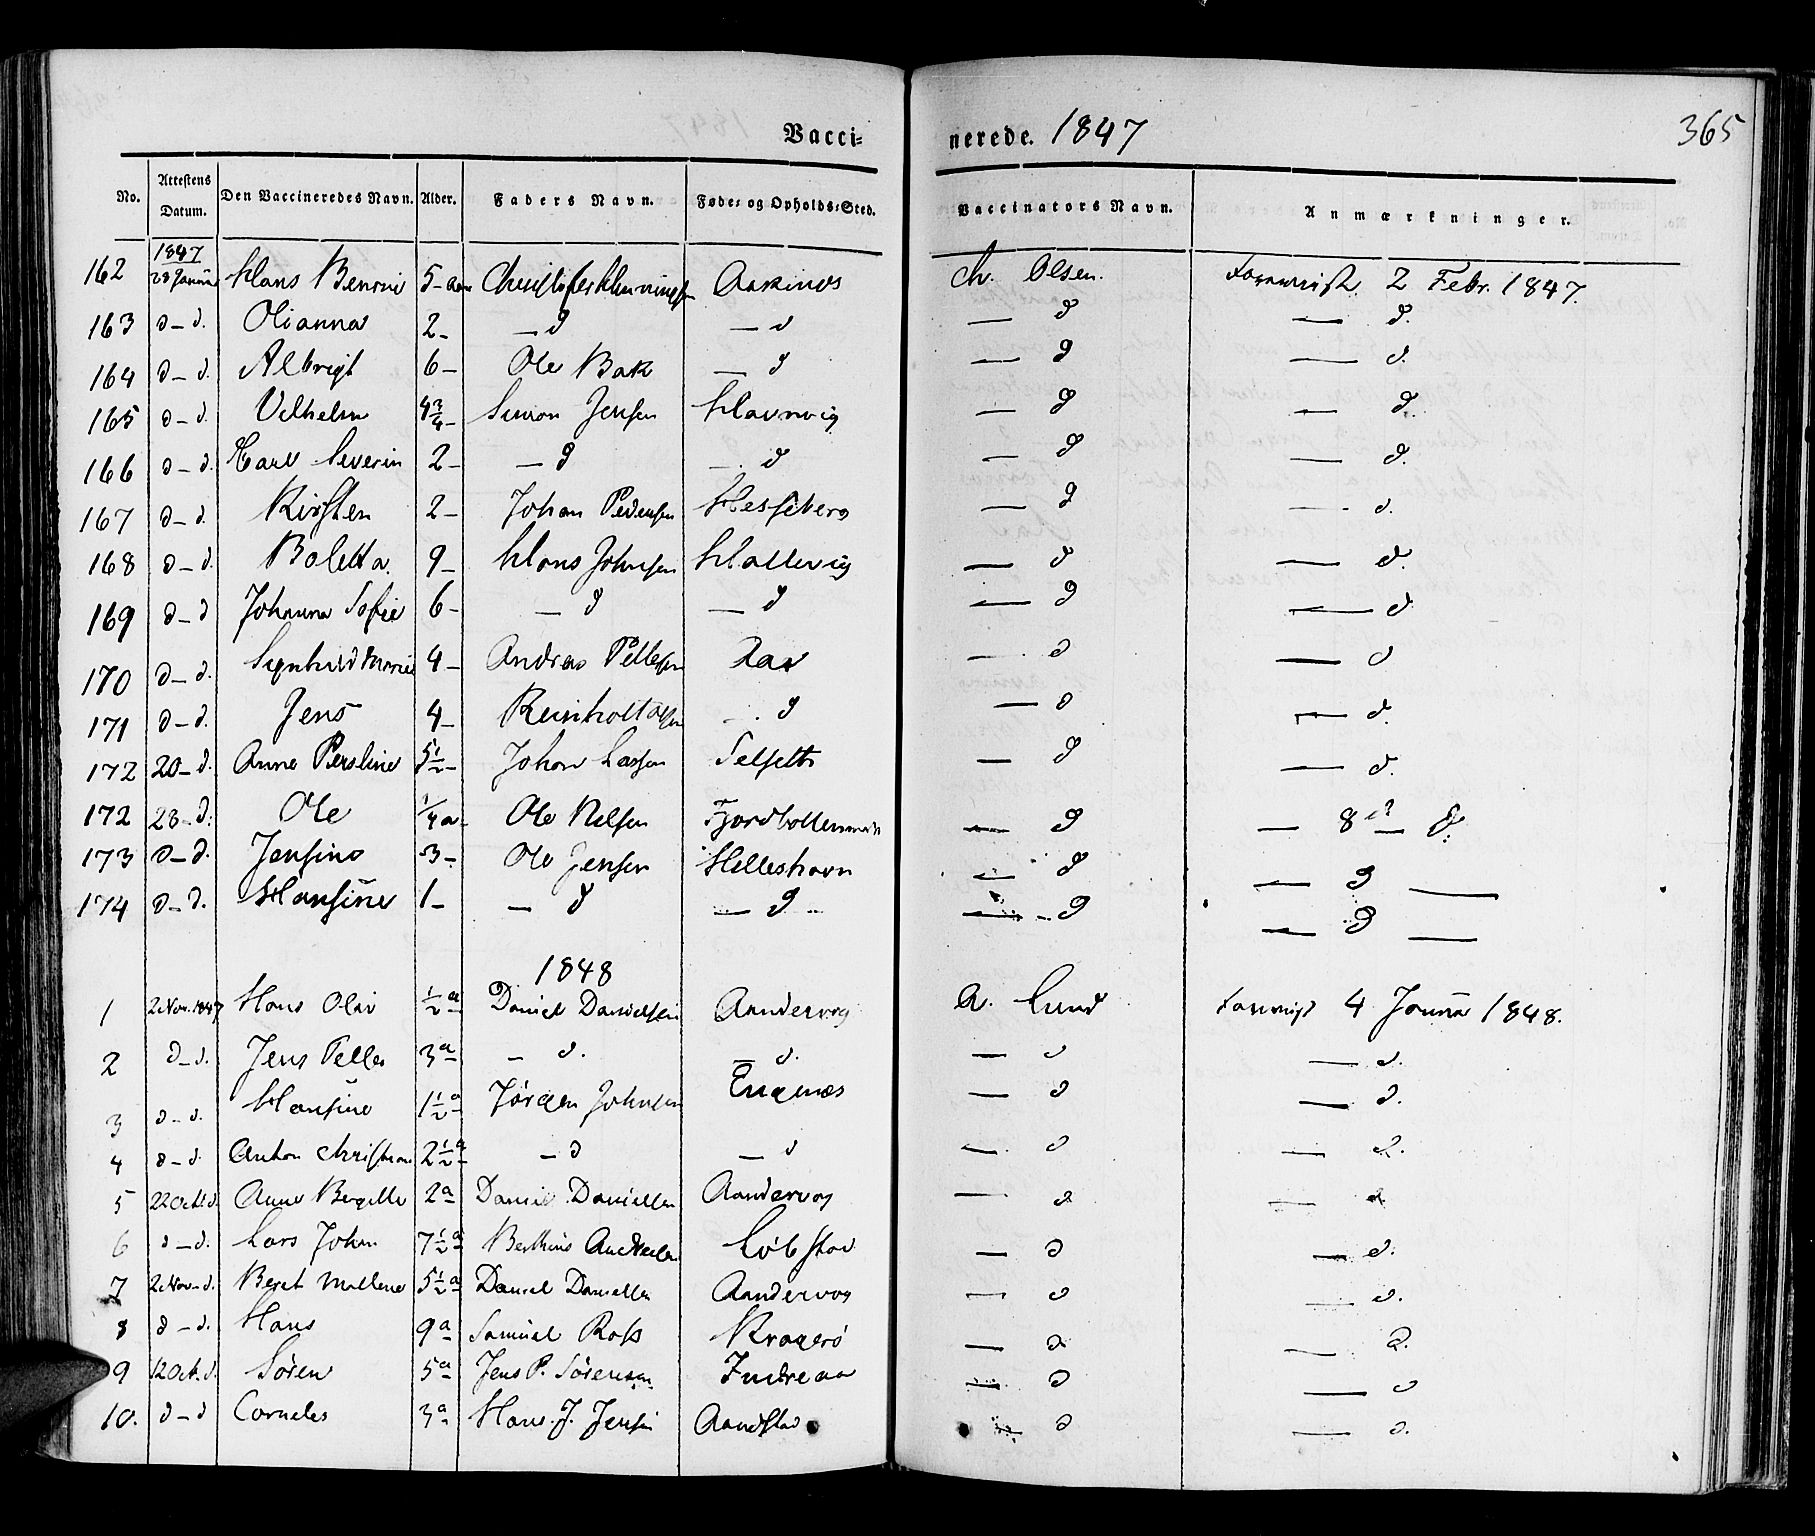 Vacci- nerede. 1847 365
No. Attestens Datum. Den Vaccineredes Navn. Alder. Faders Navn. Føde- og Opholds-Sted. Vaccinators Navn. Anmærkninger.
1847
162 28 Hans 5 - Aar Aakinds Ch. Olsen. 2 Febr. 1847.
163 d - d. Olianna 2 - — d — d — d — d.
164 d - d. Albrigt 6 - Ole Bak — d — d — d.
165 d - d. Velhelm 4 3/4 - Simon Jensen Havnvig — d — d.
166 d - d. Carl Severin 2 - — d — d — d — d.
167 d - d. Kirsten 2 - Johan Pedersen Hesseberg — d — d.
168 d - d. Boletta. 9 - Hans Johnsen Hallevig — d — d.
169 d - d Johanna Sofie 6 - — d — d — d — d
170 d - d. Marie 4 - Andreas Pettersen Aar — d — d
171 d - d. Jens 4 - Reinholt Olsen — d — d — d.
172 20 - d. Anne Persline 5 1/2 - Johan Lassen Selseth — d — d.
172 28 - d. Ole 1/4 a - Ole Nelsen — d — 8 d — d.
173 d - d. Jensine 3 - Ole Jensen Helleshavn — d — d —
174 d - d. Hansine 1 - — d — d — d — d —
1848
1 2 Nov. 1847 Hans Olai 1/2 a Daniel Danielsen Aandervag A. Lund 4 1848.
2 d - d. Jens Petter 3 a — d. — d. — d — d.
3 d - d. Hansine 1 1/2 a Jørgen Johnsen Engenæs — d — d.
4 d - d. Anton Christian 2 1/2 a — d — d — d — d.
5 22 Oct. d. Anne Bergitte 2 a Daniel Danielsen Aandervag — d — d
6 d - d. Lars Johan 7 1/2 a Løbstad — d — d.
7 2 Nov - d. Beret Mallene 5 1/2 a Daniel Danielsen Aandervag — d — d.
8 d - d. Hans 9 a Samuel Ross Kragerö — d — d.
9 12 Oct. d. Søren 5 a Jens P. Sørensen Indreaa — d — d
10. d - d Cornelis 3 a Hans J. Jensen Aandstad — d — d.